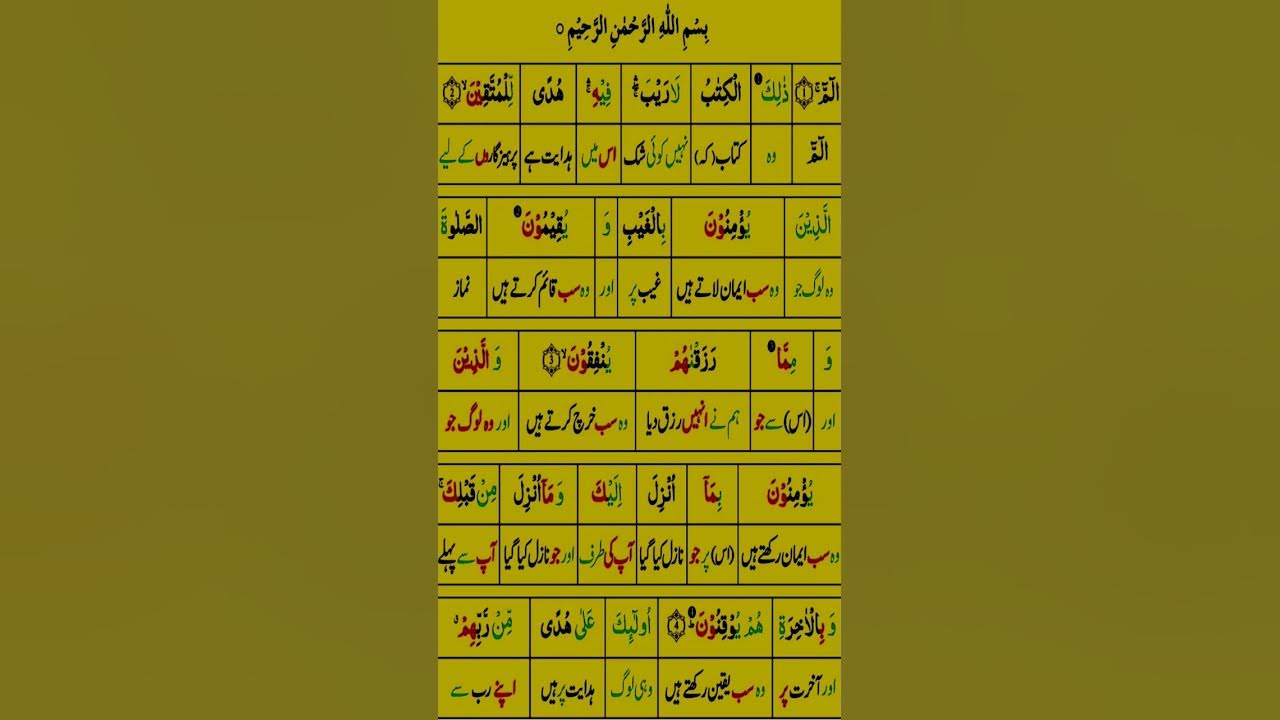 بِسْمِ اللّٰهِ الرَّحْمٰنِ الرَّحِیْمِ ○
الٓمّٓ ۚ ﴿1﴾ ذٰلِكَ ❶ الْكِتٰبُ لَا رَیْبَ ۛۖ فِیْهِ ۛۚ هُدًی لِّلْمُتَّقِیْنَ ۙ ﴿2﴾
الٓمّٓ وہ کتاب (کہ) نہیں کوئی شک اس میں ہدایت ہے پرہیزگاروں کے لیے
الَّذِیْنَ یُؤْمِنُوْنَ بِالْغَیْبِ وَ یُقِیْمُوْنَ ❷ الصَّلٰوةَ
وہ لوگ جو وہ سب ایمان لاتے ہیں غیب پر اور وہ سب قائم کرتے ہیں نماز
وَ مِمَّا ❸ رَزَقْنٰهُمْ یُنْفِقُوْنَ ۙ ﴿3﴾ وَ الَّذِیْنَ
اور (اس) سے جو ہم نے انہیں رزق دیا وہ سب خرچ کرتے ہیں اور وہ لوگ جو
یُؤْمِنُوْنَ بِمَاۤ اُنْزِلَ اِلَیْكَ وَ مَاۤ اُنْزِلَ مِنْ قَبْلِكَ ۚ
وہ سب ایمان رکھتے ہیں (اس) پر جو نازل کیا گیا آپ کی طرف اور جو نازل کیا گیا آپ سے پہلے
وَ بِالْاٰخِرَةِ هُمْ یُوْقِنُوْنَ ؕ ❹ ﴿4﴾ اُولٰٓىِٕكَ عَلٰی هُدًی مِّنْ رَّبِّهِمْ ۗ
اور آخرت پر وہ سب یقین رکھتے ہیں وہی لوگ ہدایت پر ہیں اپنے رب سے